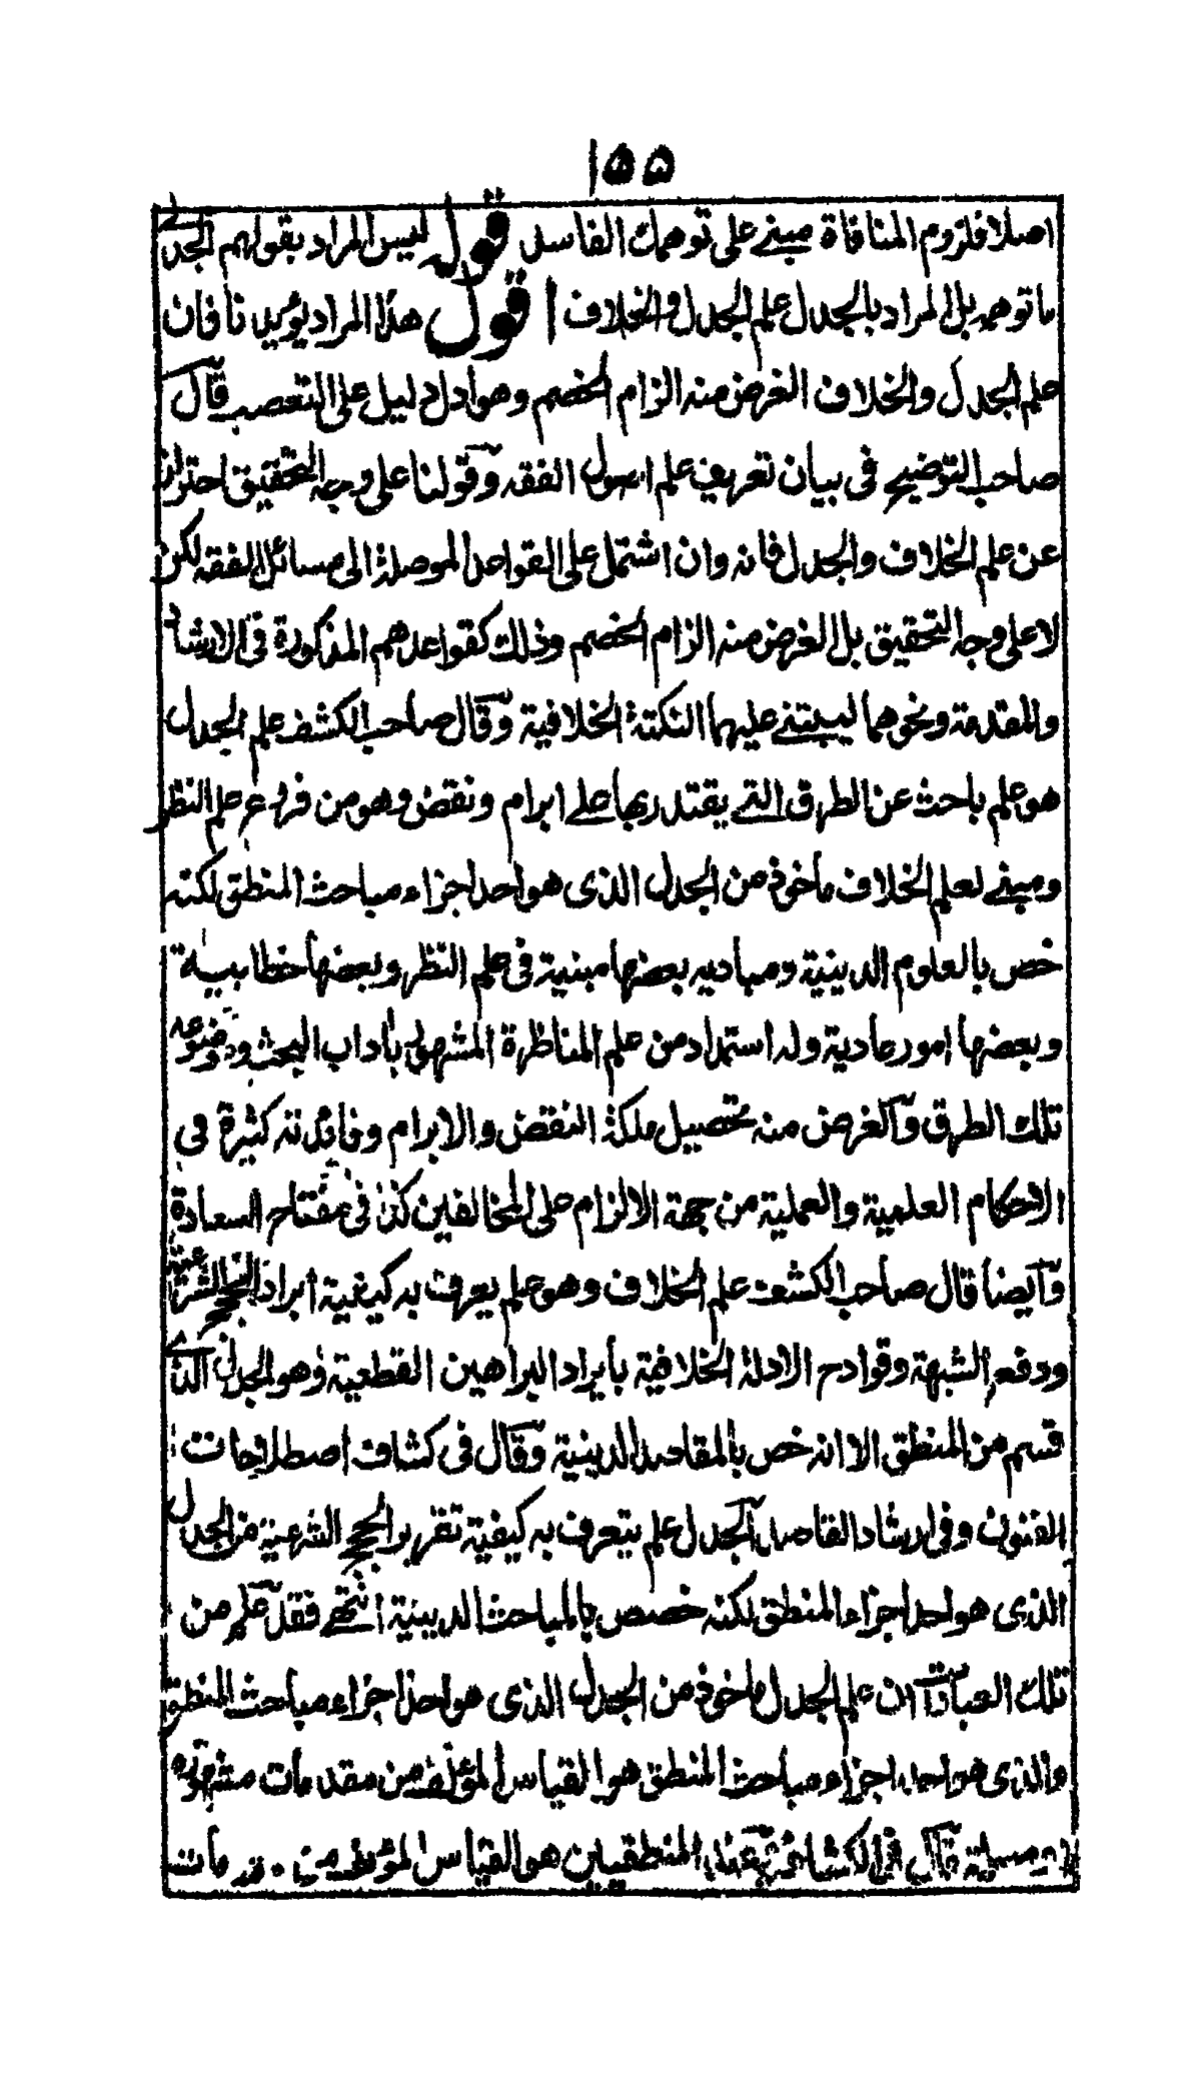 ١٥٥
اصلا فلزوم المنافاة مبني على توهمك الفاسد قوله ليس المراد بقولهم الجدلي
ما توهمه بل المراد بالجدل علم الجدل والخلاف اقول هذا المراد يؤيدنا فان
علم الجدل والخلاف الغرض منه الزام الخصم وهو ادل دليل على التعصب قال
صاحب التوضيح فى بيان تعريف علم اصول الفقه وقولنا على وجه التحقيق احتراز
عن علم الخلاف والجدل فانه وان اشتمل على القواعد الموصلة الى مسائل الفقه لكن
لا على وجه التحقيق بل الغرض منه الزام الخصم وذلك كقواعدهم المذكورة فى الارشاد
والمقدمة ونحوهما ليبتني عليهما النكتة الخلافية وقال صاحب الكشف علم الجدل
هو علم باحث عن الطرق التي يقتدر بها على ابرام ونقض وهو من فروع علم النظر
ومبني لعلم الخلاف مأخوذ من الجدل الذى هو احد اجزاء مباحث المنطق لكنه
خص بالعلوم الدينية ومباديه بعضها مبنية فى علم النظر وبعضها خطابية
وبعضها امور عادية وله استمداد من علم المناظرة المشهور بآداب البحث وموضوعه
تلك الطرق والغرض منه تحصيل ملكة النقض والابرام وفائدته كثيرة فى
الاحكام العلمية والعملية من جهة الالزام على المخالفين كذا فى مفتاح السعادة
وايضا قال صاحب الكشف علم الخلاف وهو علم يعرف به كيفية ايراد الحجج الشرعية
ودفع الشبهة وقوادح الادلة الخلافية بأيراد البراهين القطعية وهو الجدل الذي
قسم من المنطق الا انه خص بالمقاصد الدينية وقال فى كشاف اصطلاحات
الفنون وفى ارشاد القاصد الجدل علم يتعرف به كيفية تقرير الحجج الشرعية من الجدل
الذى هو احد اجزاء المنطق لكنه خصص بالمباحث الدينية انتهى فقد علم من
تلك العبارات ان علم الجدل مأخوذ من الجدل الذى هو احد اجزاء مباحث المنطق
والذى هو احد اجزاء مباحث المنطق هو القياس المؤلف من مقدمات مشهورة
قال فى الكشاف عند المنطقيين هو القياس المؤلف من مقدمات